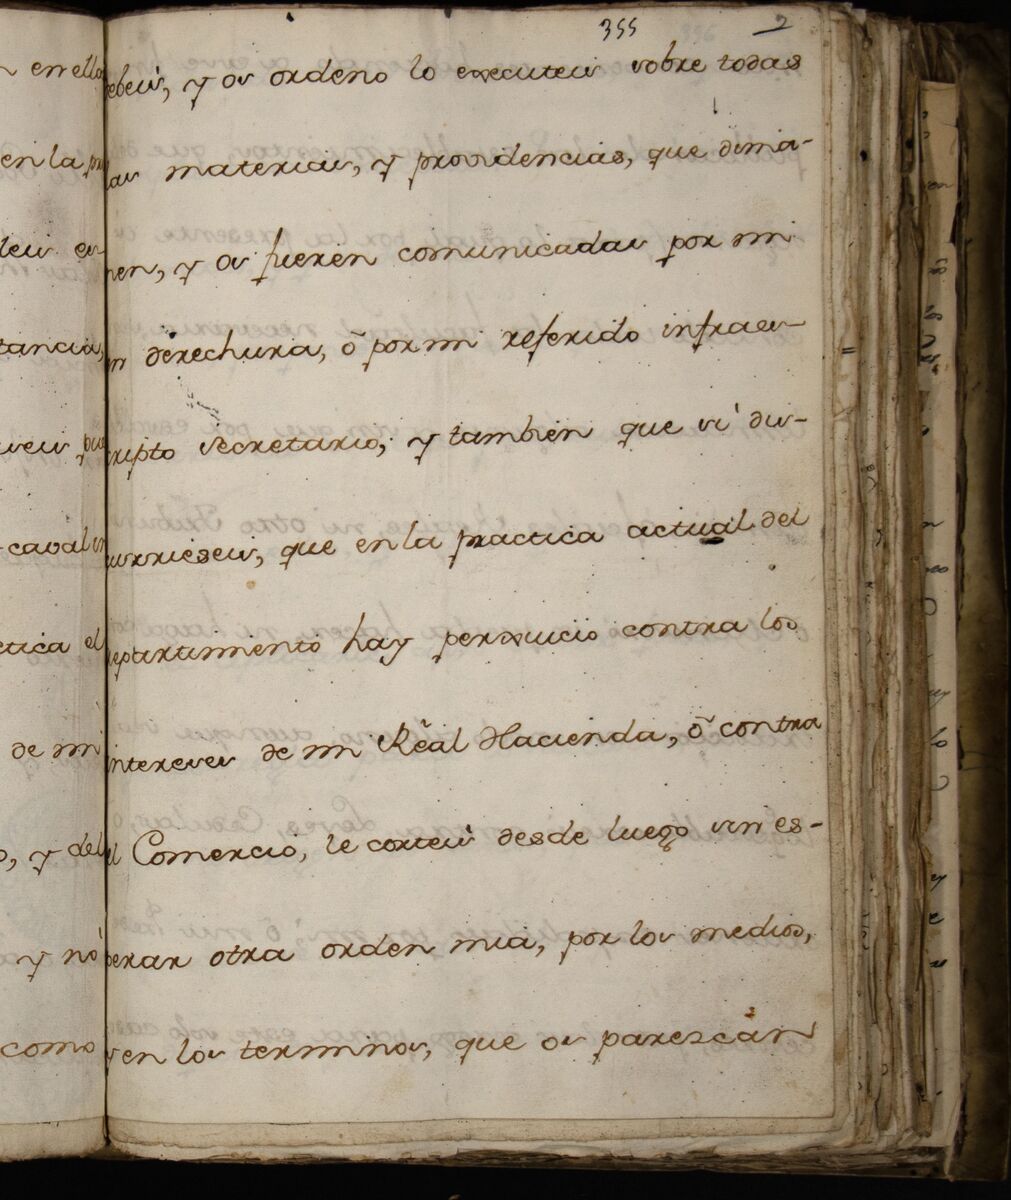 355 2
ebeis, y os ordeno lo executeis sobre todas
las materias, y providencias, que dima-
nen, y os fueren comunicadas por mi
en derechura, ó por mi referido infraes-
cripto secretario; y tambien que si dis-
currieseis, que en la practica actual del
departimento hay perxuicio contra los
intereses de mi Real Hacienda, ó contra
el Comercio, le corteis desde luego sin es-
perar otra orden mia, por los medios,
y en los terminos, que os parezcan
en ello
en la
tancia,
caval
ctica el
de mi
y del
y nó
como